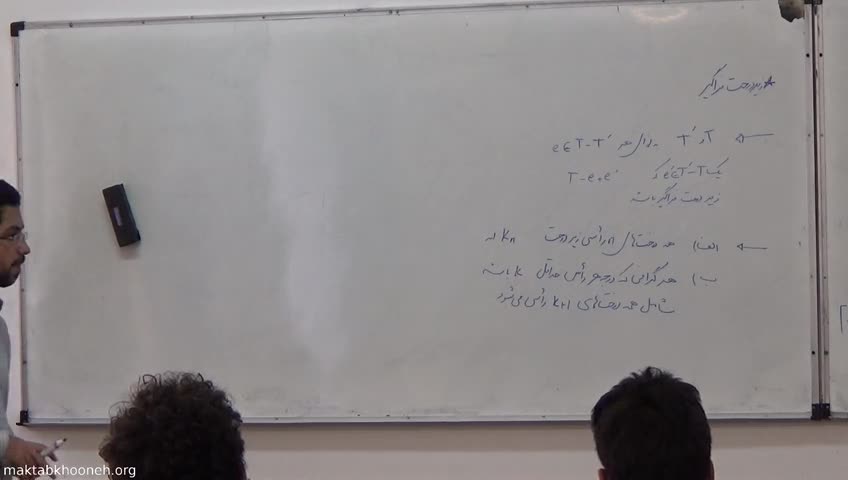 * زیردرخت فراگیر
← T و T' به ازای هر e ∈ T - T'
یک e' ∈ T' - T که T - e + e'
زیر درخت فراگیر باشد
← الف) همه درخت‌های n رأسی زیردرخت Kn اند
ب) هر گرافی که درجه هر رأس حداقل k باشد
شامل همه درخت‌های k+1 رأسی می‌شود
maktabkhooneh.org